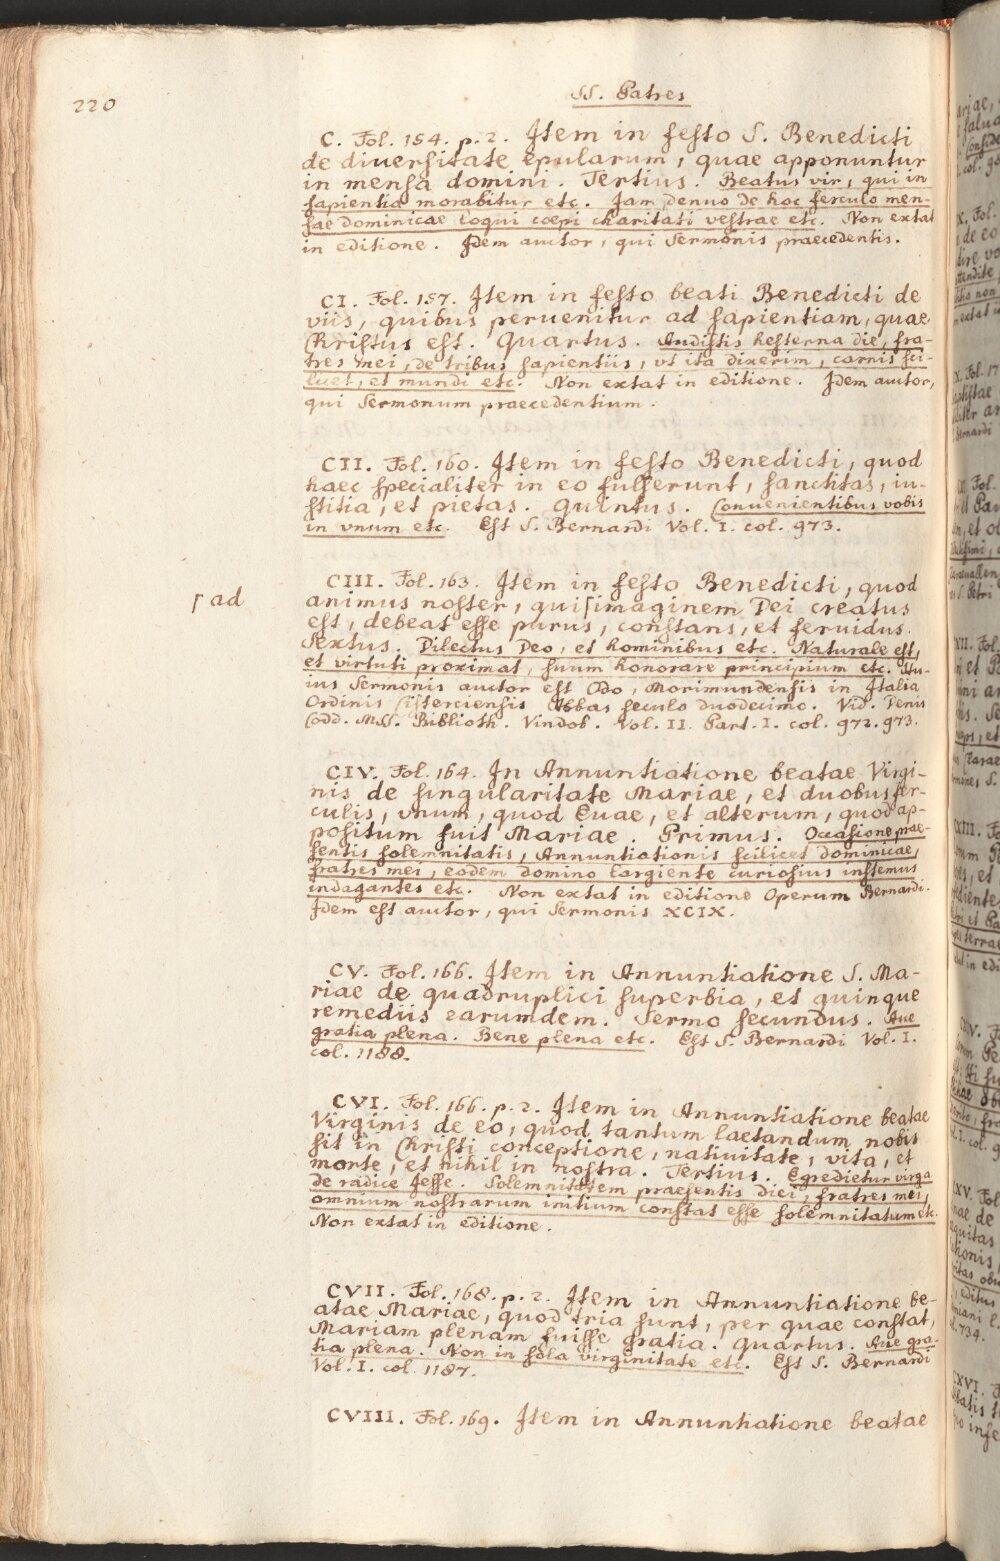 220
SS. Patres
C. Fol. 154. p. 2. Item in festo S. Benedicti
de diuersitate epularum, quae apponuntur
in mensa domini. Tertius. Beatus vir, qui in
sapientia morabitur etc. Jam denuo de hoc ferculo men-
sae dominicae loqui coepi charitati vestrae etc. Non extat
in editione. Idem auctor, qui Sermonis praecedentis.
CI. Fol. 157. Item in festo beati Benedicti de
viis, quibus peruenitur ad sapientiam, quae
Christus est. Quartus. Audistis hesterna die, fra-
tres mei, de tribus sapientiis, vt ita dixerim, carnis sci-
licet, et mundi etc. Non extat in editione. Idem auctor,
qui Sermonum praecedentium.
CII. Fol. 160. Item in festo Benedicti, quod
haec specialiter in eo fulserunt, sanctitas, iu-
stitia, et pietas. Quintus. Conuenientibus vobis
in vnum etc. Est S. Bernardi Vol. I. col. 973.
CIII. Fol. 163. Item in festo Benedicti, quod
⌈ ad
animus noster, qui⌈imaginem Dei creatus
est, debeat esse purus, constans, et feruidus.
Sextus. Dilectus Deo, et hominibus etc. Naturale est,
et virtuti proximat, suum honorare principium etc. Hu-
ius Sermonis auctor est Odo, Morimundensis in Italia
Ordinis Cisterciensis Abbas seculo duodecimo. Vid. Denis
Codd. MSS. Biblioth. Vindob. Vol. II. Part. I. col. 972. 973.
CIV. Fol. 164. In Annuntiatione beatae Virgi-
nis de singularitate Mariae, et duobus fer-
culis, vnum, quod Euae, et alterum, quod ap-
positum fuit Mariae. Primus. Occasione prae-
sentis solemnitatis, Annuntiationis scilicet dominicae,
fratres mei, eodem domino largiente curiosius instemus
indagantes etc. Non extat in editione Operum Bernardi.
Idem est auctor, qui Sermonis XCIX.
CV. Fol. 166. Item in Annuntiatione S. Ma-
riae de quadruplici superbia, et quinque
remediis earumdem. Sermo secundus. Aue
gratia plena. Bene plena etc. Est S. Bernardi Vol. I.
col. 1188.
CVI. Fol. 166. p. 2. Item in Annuntiatione beatae
Virginis de eo, quod tantum laetandum nobis
sit in Christi conceptione, natiuitate, vita, et
morte, et nihil in nostra. Tertius. Egredietur virga
de radice Jesse. Solemnitatem praesentis diei, fratres mei,
omnium nostrarum initium constat esse solemnitatum etc.
Non extat in editione.
CVII. Fol. 168. p. 2. Item in Annuntiatione be-
atae Mariae, quod tria sunt, per quae constat,
Mariam plenam fuisse gratia. Quartus. Aue gra-
tia plena. Non in sola virginitate etc. Est S. Bernardi
Vol. I. col. 1187.
CVIII. Fol. 169. Item in Annuntiatione beatae